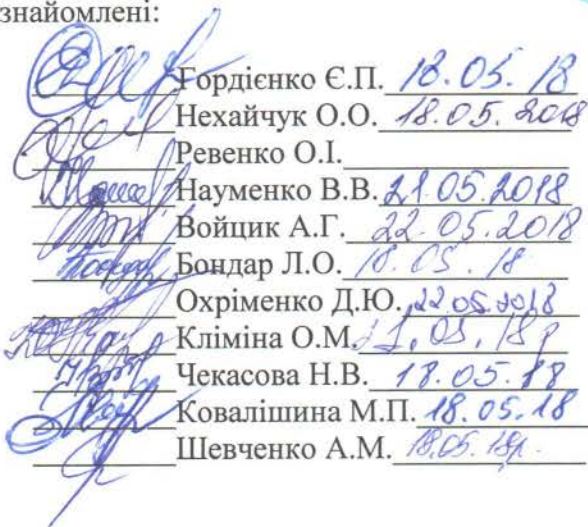 знайомлені:
Гордієнко Є.П. 18.05.18
Нехайчук О.О. 18.05.2018
Ревенко О.І.
Науменко В.В. 21.05.2018
Войцик А.Г. 22.05.2018
Бондар Л.О. 18.05.18
Охріменко Д.Ю. 22.05.2018
Кліміна О.М.
Чекасова Н.В. 18.05.18
Ковалішина М.П. 18.05.18
Шевченко А.М. 18.05.18р.